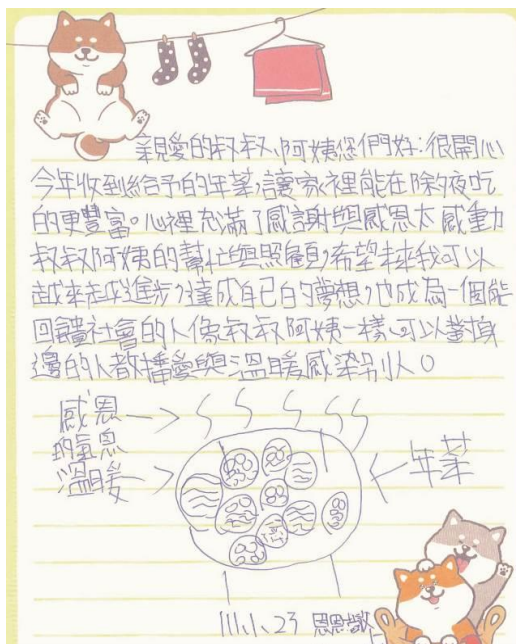 親愛的叔叔、阿姨您們好:很開心
今年收到給予的年菜,讓家裡能在除夕夜吃
的更豐富。心裡充滿了感謝與感恩太感動
叔叔阿姨的幫忙與照顧,希望未來我可以
越來越進步,達成自己的夢想,也成為一個能
回饋社會的人像叔叔阿姨一樣,可以當身
邊的人散播愛與溫暖感染別人。
感恩
的氣息
溫暖
年菜
111.1.23 恩恩